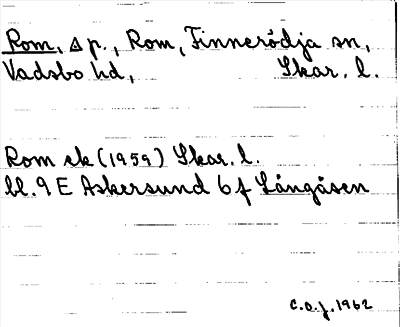 Rom, Δ p., Rom, Finnerödja sn,
Vadsbo hd, Skar. l.
Rom ek (1959) Skar. l.
bl. 9 E Askersund 6 f Långåsen
C.O.J. 1962